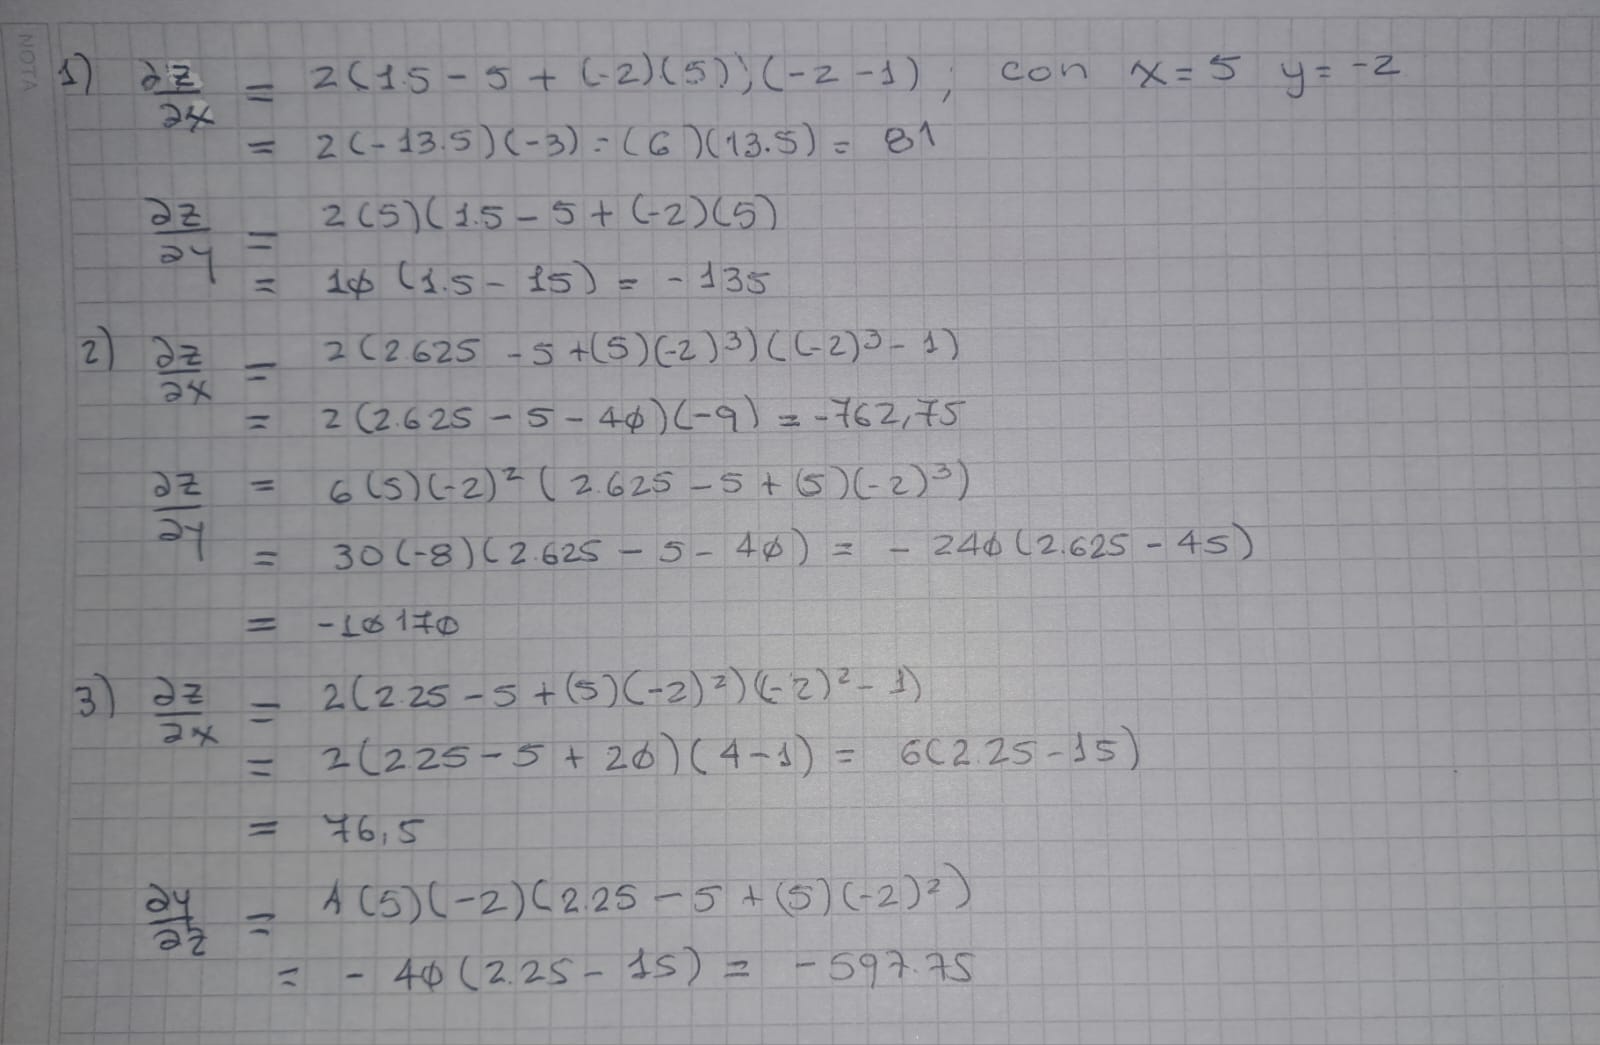 NOTA
1) ∂z/∂x = 2(1.5 - 5 + (-2)(5));(-2-1) ; con x = 5 y = -2
= 2(-13.5)(-3) = (6)(13.5) = 81
∂z/∂y = 2(5)(1.5 - 5 + (-2)(5)
= 10 (1.5 - 15) = -135
2) ∂z/∂x = 2(2.625 - 5 + (5)(-2)³)((-2)³ - 1)
= 2(2.625 - 5 - 40)(-9) = -762,75
∂z/∂y = 6(5)(-2)²(2.625 - 5 + (5)(-2)³)
= 30(-8)(2.625 - 5 - 40) = - 240(2.625 - 45)
= -10170
3) ∂z/∂x = 2(2.25 - 5 + (5)(-2)²)(-2)² - 1)
= 2(2.25 - 5 + 20)(4 - 1) = 6(2.25 - 15)
= 76,5
∂y/∂z = 4(5)(-2)(2.25 - 5 + (5)(-2)²)
= - 40(2.25 - 15) = -597.75